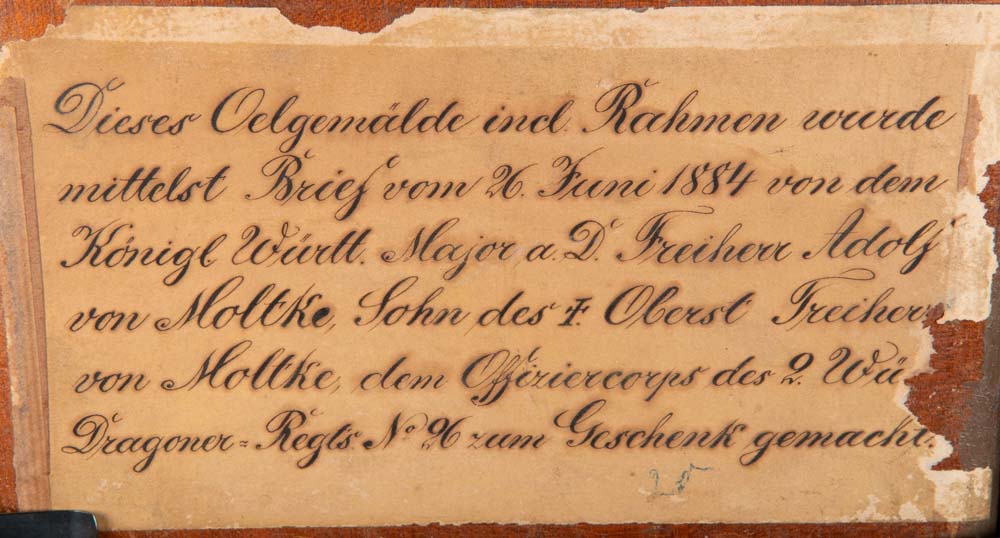 Dieses Oelgemälde incl. Rahmen wurde
mittelst Brief vom 26. Juni 1884 von dem
Königl Württ. Major a. D. Freiherr Adolf
von Moltke, Sohn des Ɨ. Oberst Freiherr
von Moltke, dem Offiziercorps des 2. Wü
Dragoner=Regts. No 26 zum Geschenk gemacht.